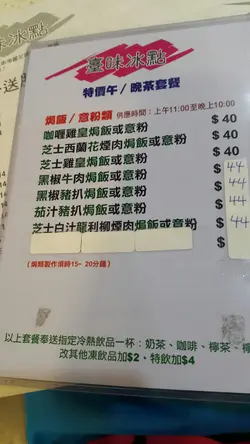 臺味冰點
特價午/晚茶套餐
焗飯/意粉類 供應時間：上午11:00至晚上10:00
咖喱雞皇焗飯或意粉 $ 40
芝士西蘭花煙肉焗飯或意粉 $ 40
芝士雞皇焗飯或意粉 $ 40
黑椒牛肉焗飯或意粉 $ 44
黑椒豬扒焗飯或意粉 $ 44
茄汁豬扒焗飯或意粉 $ 44
芝士白汁龍利柳煙肉焗飯或意粉 $ 44
(焗類製作需時15-20分鐘)
以上套餐奉送指定冷熱飲品一杯：奶茶、咖啡、檸茶、檸
改其他凍飲品加$2、特飲加$4